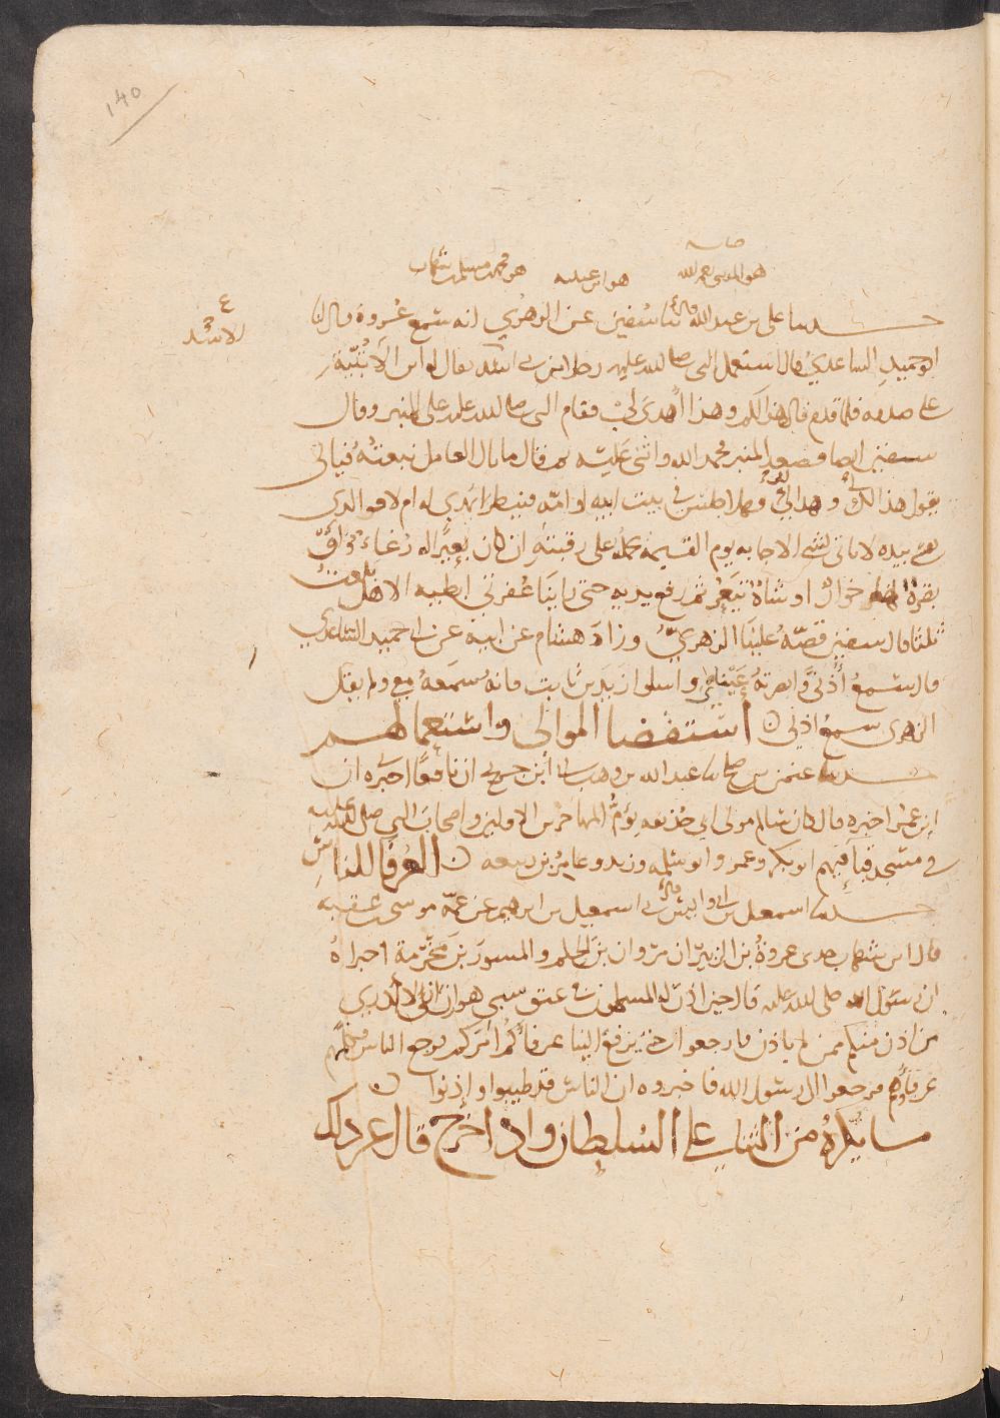 ١٤٥
هو المديني رحمه الله
هو ابن عيينه
هو محمد بن مسلم بن شهاب
حدثنا علي بن عبد الله قال ثنا سفين عن الزهري انه سمع عروة قال انا
ابو حميد الساعدي قال استعمل النبي صلى الله عليه رجلا من بني اسد يقال له ابن الاتبية
على صدقه فلما قدم قال هذا لكم وهذا اهدي لي فقام النبي صلى الله عليه على المنبر وقال
سفين ايضا فصعد المنبر فحمد الله واثنى عليه ثم قال ما بال العامل نبعثه فياتي
يقول هذا لك وهذا لي فهلا جلس في بيت ابيه او امه فينظر ايهدي له ام لا والذي
نفسي بيده لا ياتي بشي الا جا به يوم القيمة يحمله على رقبته ان كان بعيرا له رغاء او
بقرة لها خوار او شاة تيعر ثم رفع يديه حتى راينا عفرتي ابطيه الا هل بلغت
ثلثا قال سفين قصه علينا الزهري وزاد هشام عن ابيه عن ابي حميد الساعدي
قال سمع اذني وابصرته عيناي واسلوا زيد بن ثابت فانه سمعه معي ولم يقل
الزهري سمع اذني استقضا الموالي واستعمالهم
حدثنا عثمن بن صالح نا عبد الله بن وهب ابن جريج ان نافعا اخبره ان
ابن عمر اخبره قال كان سالم مولى ابي حذيفه يؤم المهاجرين الاولين واصحاب النبي صلى الله عليه
في مسجد قباء فيهم ابو بكر وعمر وابو سلمه وزيد وعامر بن ربيعه العرفا للناس
حدثنا اسمعيل بن ابي اويس قال اسمعيل بن ابرهيم عن عمه موسى بن عقبه
قال ابن شهاب حدثني عروة بن الزبير ان مروان بن الحكم والمسور بن مخرمة اخبراه
ان رسول الله صلى الله عليه قال حين اذن له المسلمون في عتق سبي هوازن اني لا ادري
من اذن منكم ممن لم ياذن فارجعوا حتى يرفع الينا عرفاؤكم امركم فرجع الناس فكلمهم
عرفاؤهم فرجعوا الى رسول الله فاخبروه ان الناس قد طيبوا واذنوا
ما يكره من الثناء على السلطان واذا خرج قال غير ذلك